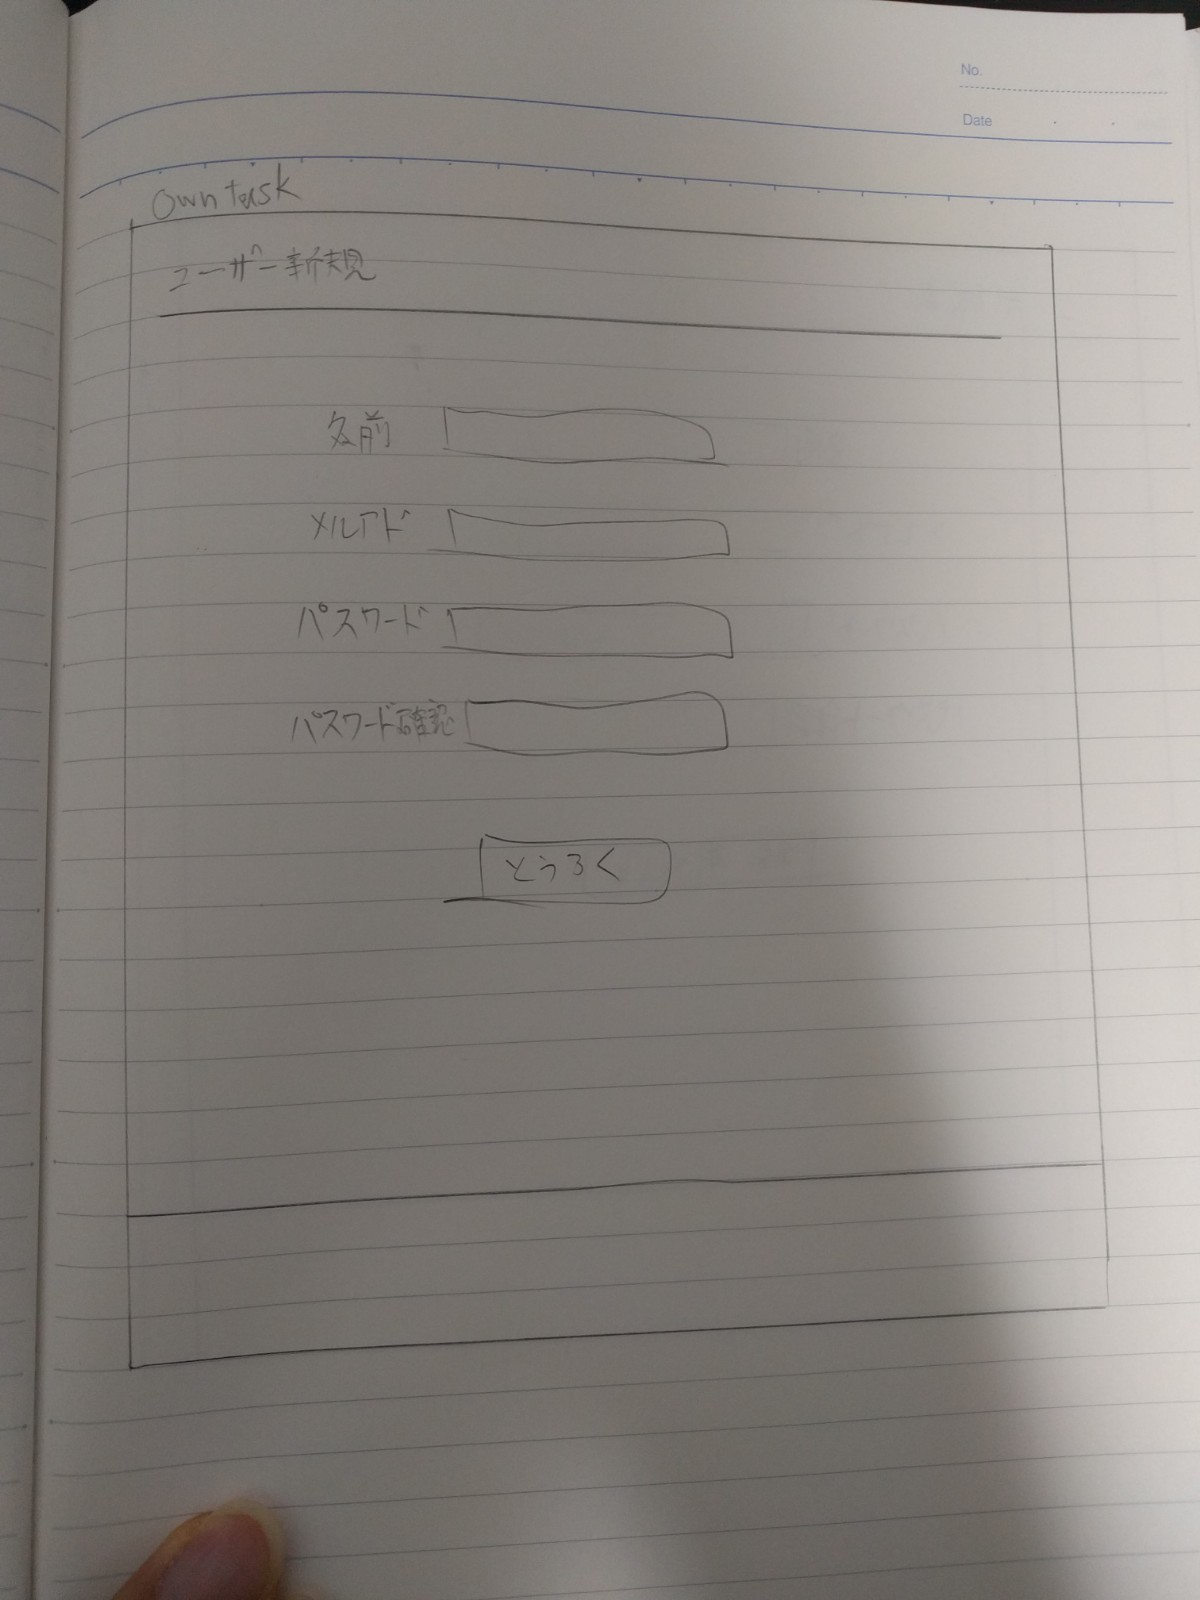 No.
Date
Own task
ユーザー新規
名前
メルアド
パスワード
パスワード確認
とうろく